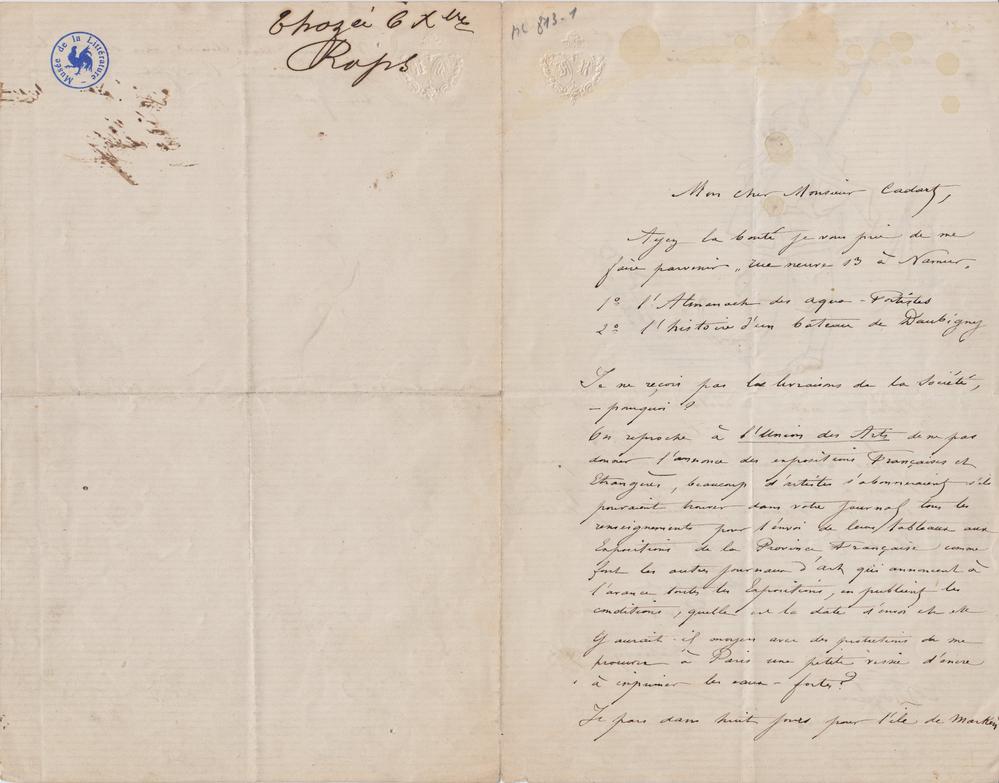 Musée de la Littérature
Thozée 6 Xbre
Rops
ML 813-1
Mon cher Monsieur Cadart,
Ayez la bonté je vous prie de me
faire parvenir, rue neuve 13 à Namur,
1º l'Almanach des aqua-Fortistes
2º l'histoire d'un bâteau de Daubigny
Je ne reçois pas les livraisons de la Société,
– pourquoi ?
On reproche à l'Union des Arts de ne pas
donner l'annonce des expositions Françaises et
Etrangères, beaucoup d'artistes s'abonneraient s'ils
pouvaient trouver dans votre journal tous les
renseignements pour l'envoi de leurs tableaux aux
Expositions de la Province Française comme
font les autres journaux d'art qui annoncent à
l'avance toutes les Expositions, en publient les
conditions, quelle est la date d'envoi etc etc
Y aurait-il moyen avec des protections de me
procurer à Paris une petite vessie d'encre
à imprimer les eaux-fortes ?
Je pars dans huit jours pour l'île de Marken